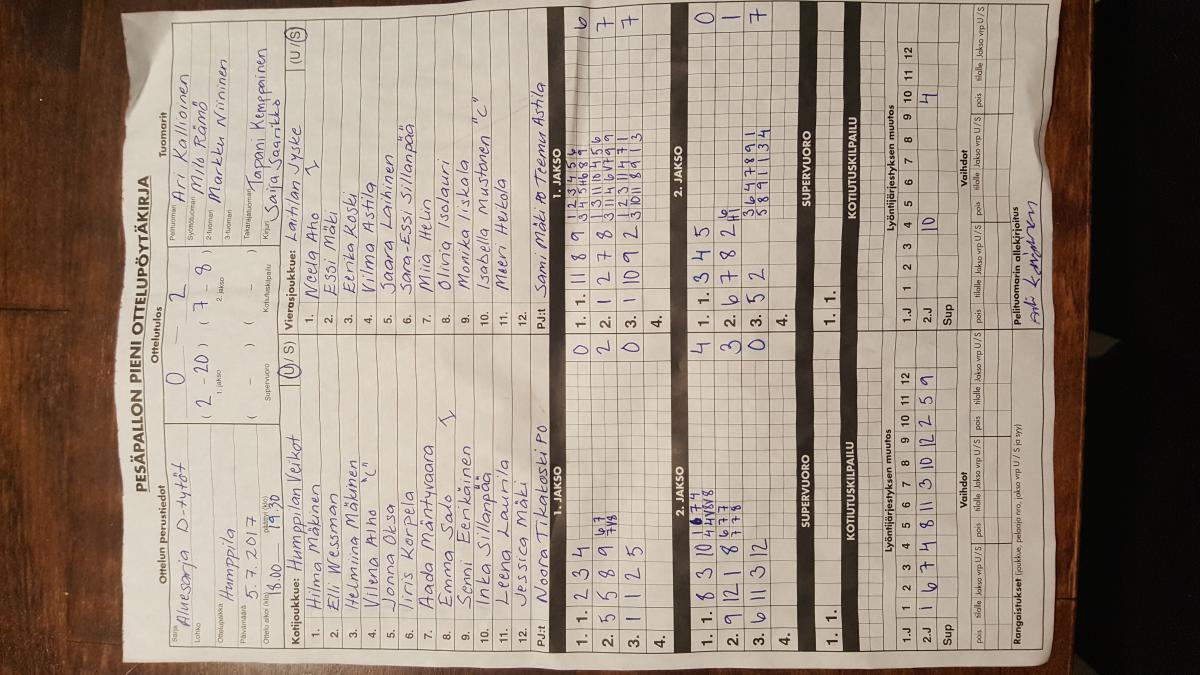 PESÄPALLON PIENI OTTELUPÖYTÄKIRJA
Ottelun perustiedot
Sarja Aluesarja D-tytöt
Lohko
Ottelupaikka Humppila
Päivämäärä 5.7.2017
Ottelu alkoi (klo) 18.00 päättyi (klo) 19.30
Ottelutulos
0 – 2
( 2 - 20 ) ( 7 - 8 )
1. jakso 2. jakso
( – ) ( – )
Supervuoro Kotiutuskilpailu
Tuomarit
Pelituomari Ari Kallioinen
Syöttötuomari Milo Rämö
2-tuomari Markku Niininen
3-tuomari
Takarajatuomari Tapani Kemppainen
Kirjuri Saija Saarikko
Kotijoukkue: Humppilan Veikot (U / S)
1. Hilma Mäkinen
2. Elli Wessman
3. Helmiina Mäkinen
4. Vilena Aho "C"
5. Jonna Oksa
6. Iiris Korpela
7. Aada Mäntyvaara
8. Emma Salo
9. Senni Eerikäinen
10. Inka Sillanpää
11. Leena Laurila
12. Jessica Mäki
PJ:t Noora Tikakoski PO
Vierasjoukkue: Laitilan Jyske (U / S)
1. Neela Aho
2. Essi Mäki
3. Eerika Koski
4. Vilma Astila
5. Saara Laihinen
6. Sara-Essi Sillanpää
7. Miia Helin
8. Olivia Isolauri
9. Monika Iiskala
10. Isabella Mustonen "C"
11. Meeri Heikola
12.
PJ:t Sami Mäki PO Teemu Astila
1. JAKSO
1. 1. 2 3 4 0
2. 5 5 8 9 6 7 2
3. 1 1 2 5 0
4.
1. JAKSO
1. 1. 11 8 9 1 2 3 4 5 6 6
2. 1 2 7 8 7
3. 1 10 9 2 7
4.
2. JAKSO
1. 1. 8 3 10 4
2. 9 12 1 8 6 7 7 3
7 7 8
3. 6 11 3 12 0
4.
2. JAKSO
1. 1. 3 4 5 0
2. 6 7 8 2 1
3. 5 2 3 6 4 7 8 9 1 7
5 8 9 1 1 3 4
4.
SUPERVUORO
1. 1.
SUPERVUORO
1. 1.
KOTIUTUSKILPAILU
KOTIUTUSKILPAILU
Lyöntijärjestyksen muutos
1.J 1 2 3 4 5 6 7 8 9 10 11 12
2.J 1 6 7 4 8 11 3 10 12 2 5 9
Sup
Lyöntijärjestyksen muutos
1.J 1 2 3 4 5 6 7 8 9 10 11 12
2.J 10 4
Sup
Vaihdot
pois tilalle Jakso vrp U / S pois tilalle Jakso vrp U / S pois tilalle Jakso vrp U / S
Vaihdot
pois tilalle Jakso vrp U / S pois tilalle Jakso vrp U / S pois tilalle Jakso vrp U / S
Rangaistukset (joukkue, pelaaja nro, jakso vrp U / S ja syy)
Pelituomarin allekirjoitus